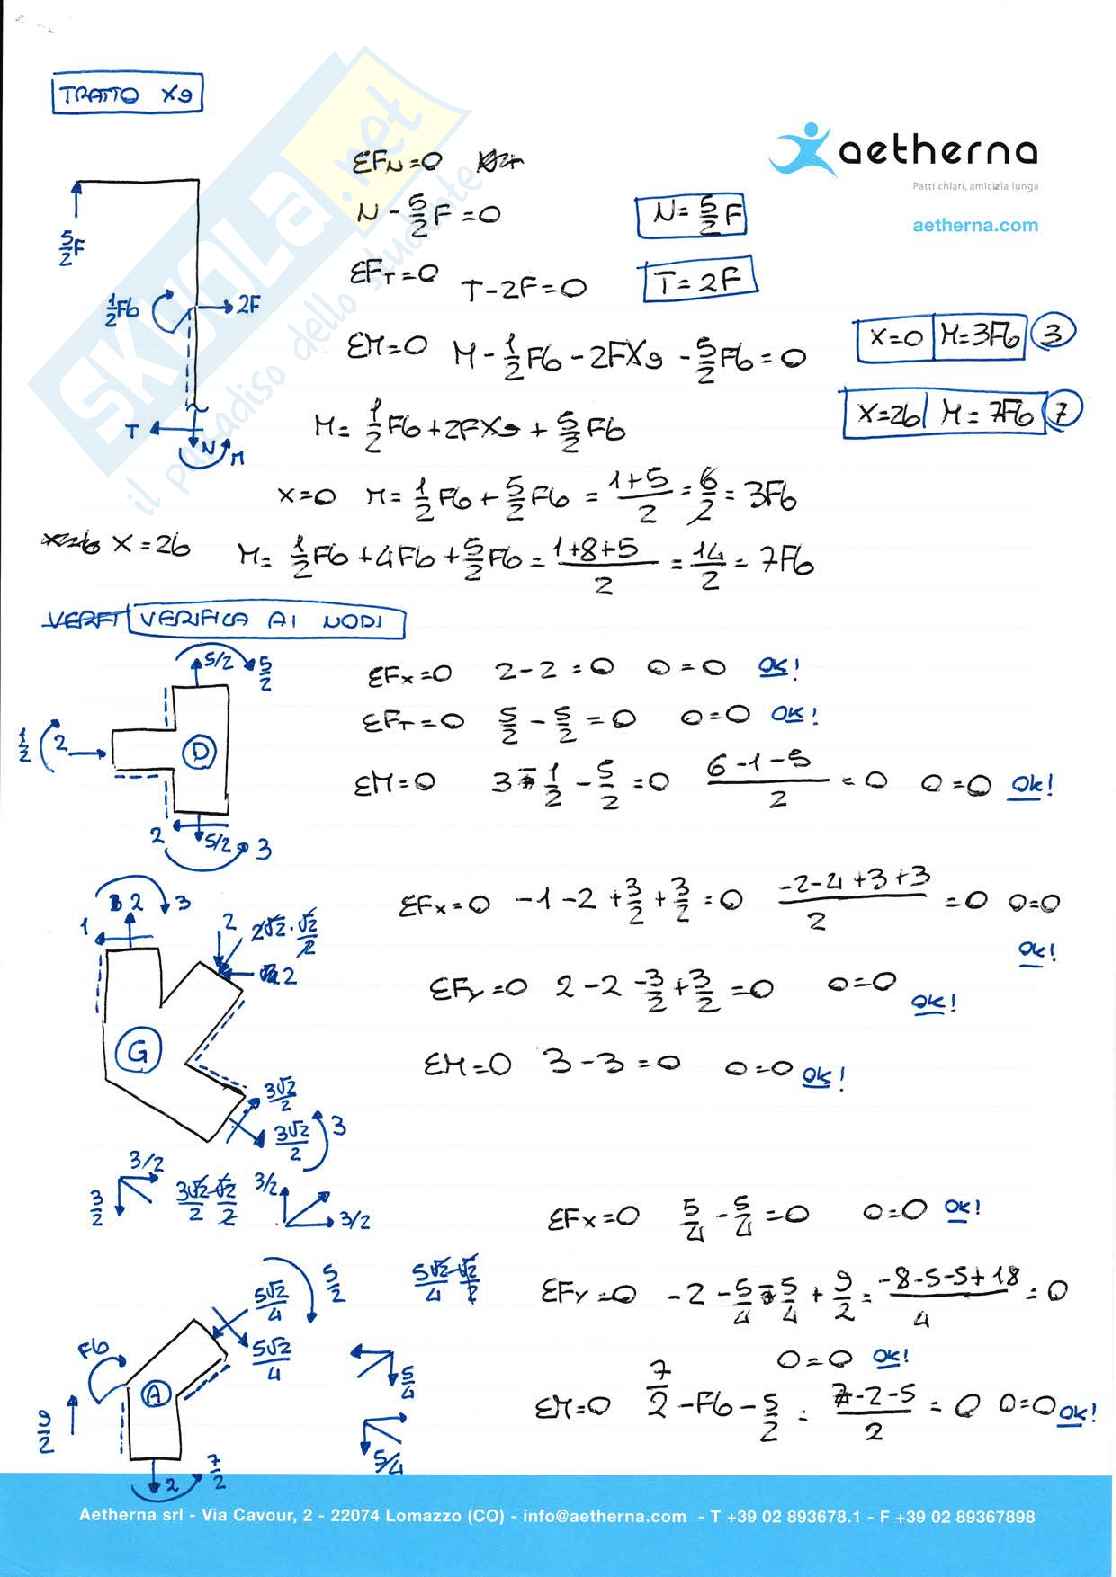 TRATTO X9
aetherna
Patti chiari, amicizia lunga
aetherna.com
SKUOLA.net
il paradiso dello studente
ΣFN=0
N - 5/2 F = 0
N = 5/2 F
5/2 F
ΣFT=0 T-2F=0
T = 2F
1/2 Fb
2F
ΣM=0 M - 1/2 Fb - 2FX9 - 5/2 Fb = 0
X=0 M=3Fb 3
X=2b M=7Fb 7
T N M
M = 1/2 Fb + 2FX9 + 5/2 Fb
X=0 M = 1/2 Fb + 5/2 Fb = 1+5/2 = 6/2 = 3Fb
X=2b M = 1/2 Fb + 4Fb + 5/2 Fb = 1+8+5/2 = 14/2 = 7Fb
VERFI VERIFICA AI NODI
5/2 5/2
ΣFx=0 2-2=0 0=0 OK!
ΣFT=0 5/2 - 5/2 = 0 0=0 OK!
1/2 2 D
ΣM=0 3 - 1/2 - 5/2 = 0 6-1-5/2 = 0 0=0 OK!
2 5/2 3
2 3
1
ΣFx=0 -1-2+3/2+3/2=0 -2-4+3+3/2 = 0 0=0
OK!
2 2√2·√2/2
2
ΣFy=0 2-2-3/2+3/2=0 0=0 OK!
G
ΣM=0 3-3=0 0=0 OK!
3√2/2
3√2/2 3
3/2
3/2 3√2/2 √2/2 3/2 3/2
ΣFx=0 5/4 - 5/4 = 0 0=0 OK!
5/2
5√2/4 √2/2
5√2/4
ΣFy=0 -2-5/4-5/4+9/2 = -8-5-5+18/4 = 0
0=0 OK!
Fb
5√2/4
A
5/4
ΣM=0 7/2 - Fb - 5/2 = 7-2-5/2 = 0 0=0 OK!
9/2
2 7/2
5/4
Aetherna srl - Via Cavour, 2 - 22074 Lomazzo (CO) - info@aetherna.com - T +39 02 893678.1 - F +39 02 89367898